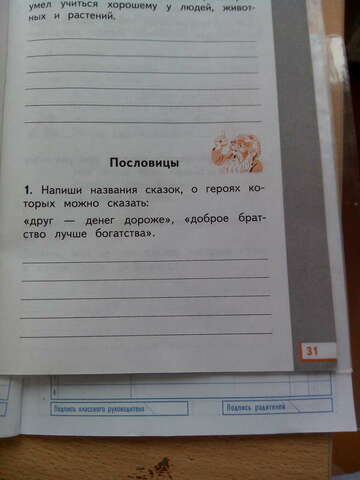 умел учиться хорошему у людей, живот-
ных и растений.
Пословицы
1. Напиши названия сказок, о героях ко-
торых можно сказать:
«друг — денег дороже», «доброе брат-
ство лучше богатства».
31
Подпись классного руководителя
Подпись родителей